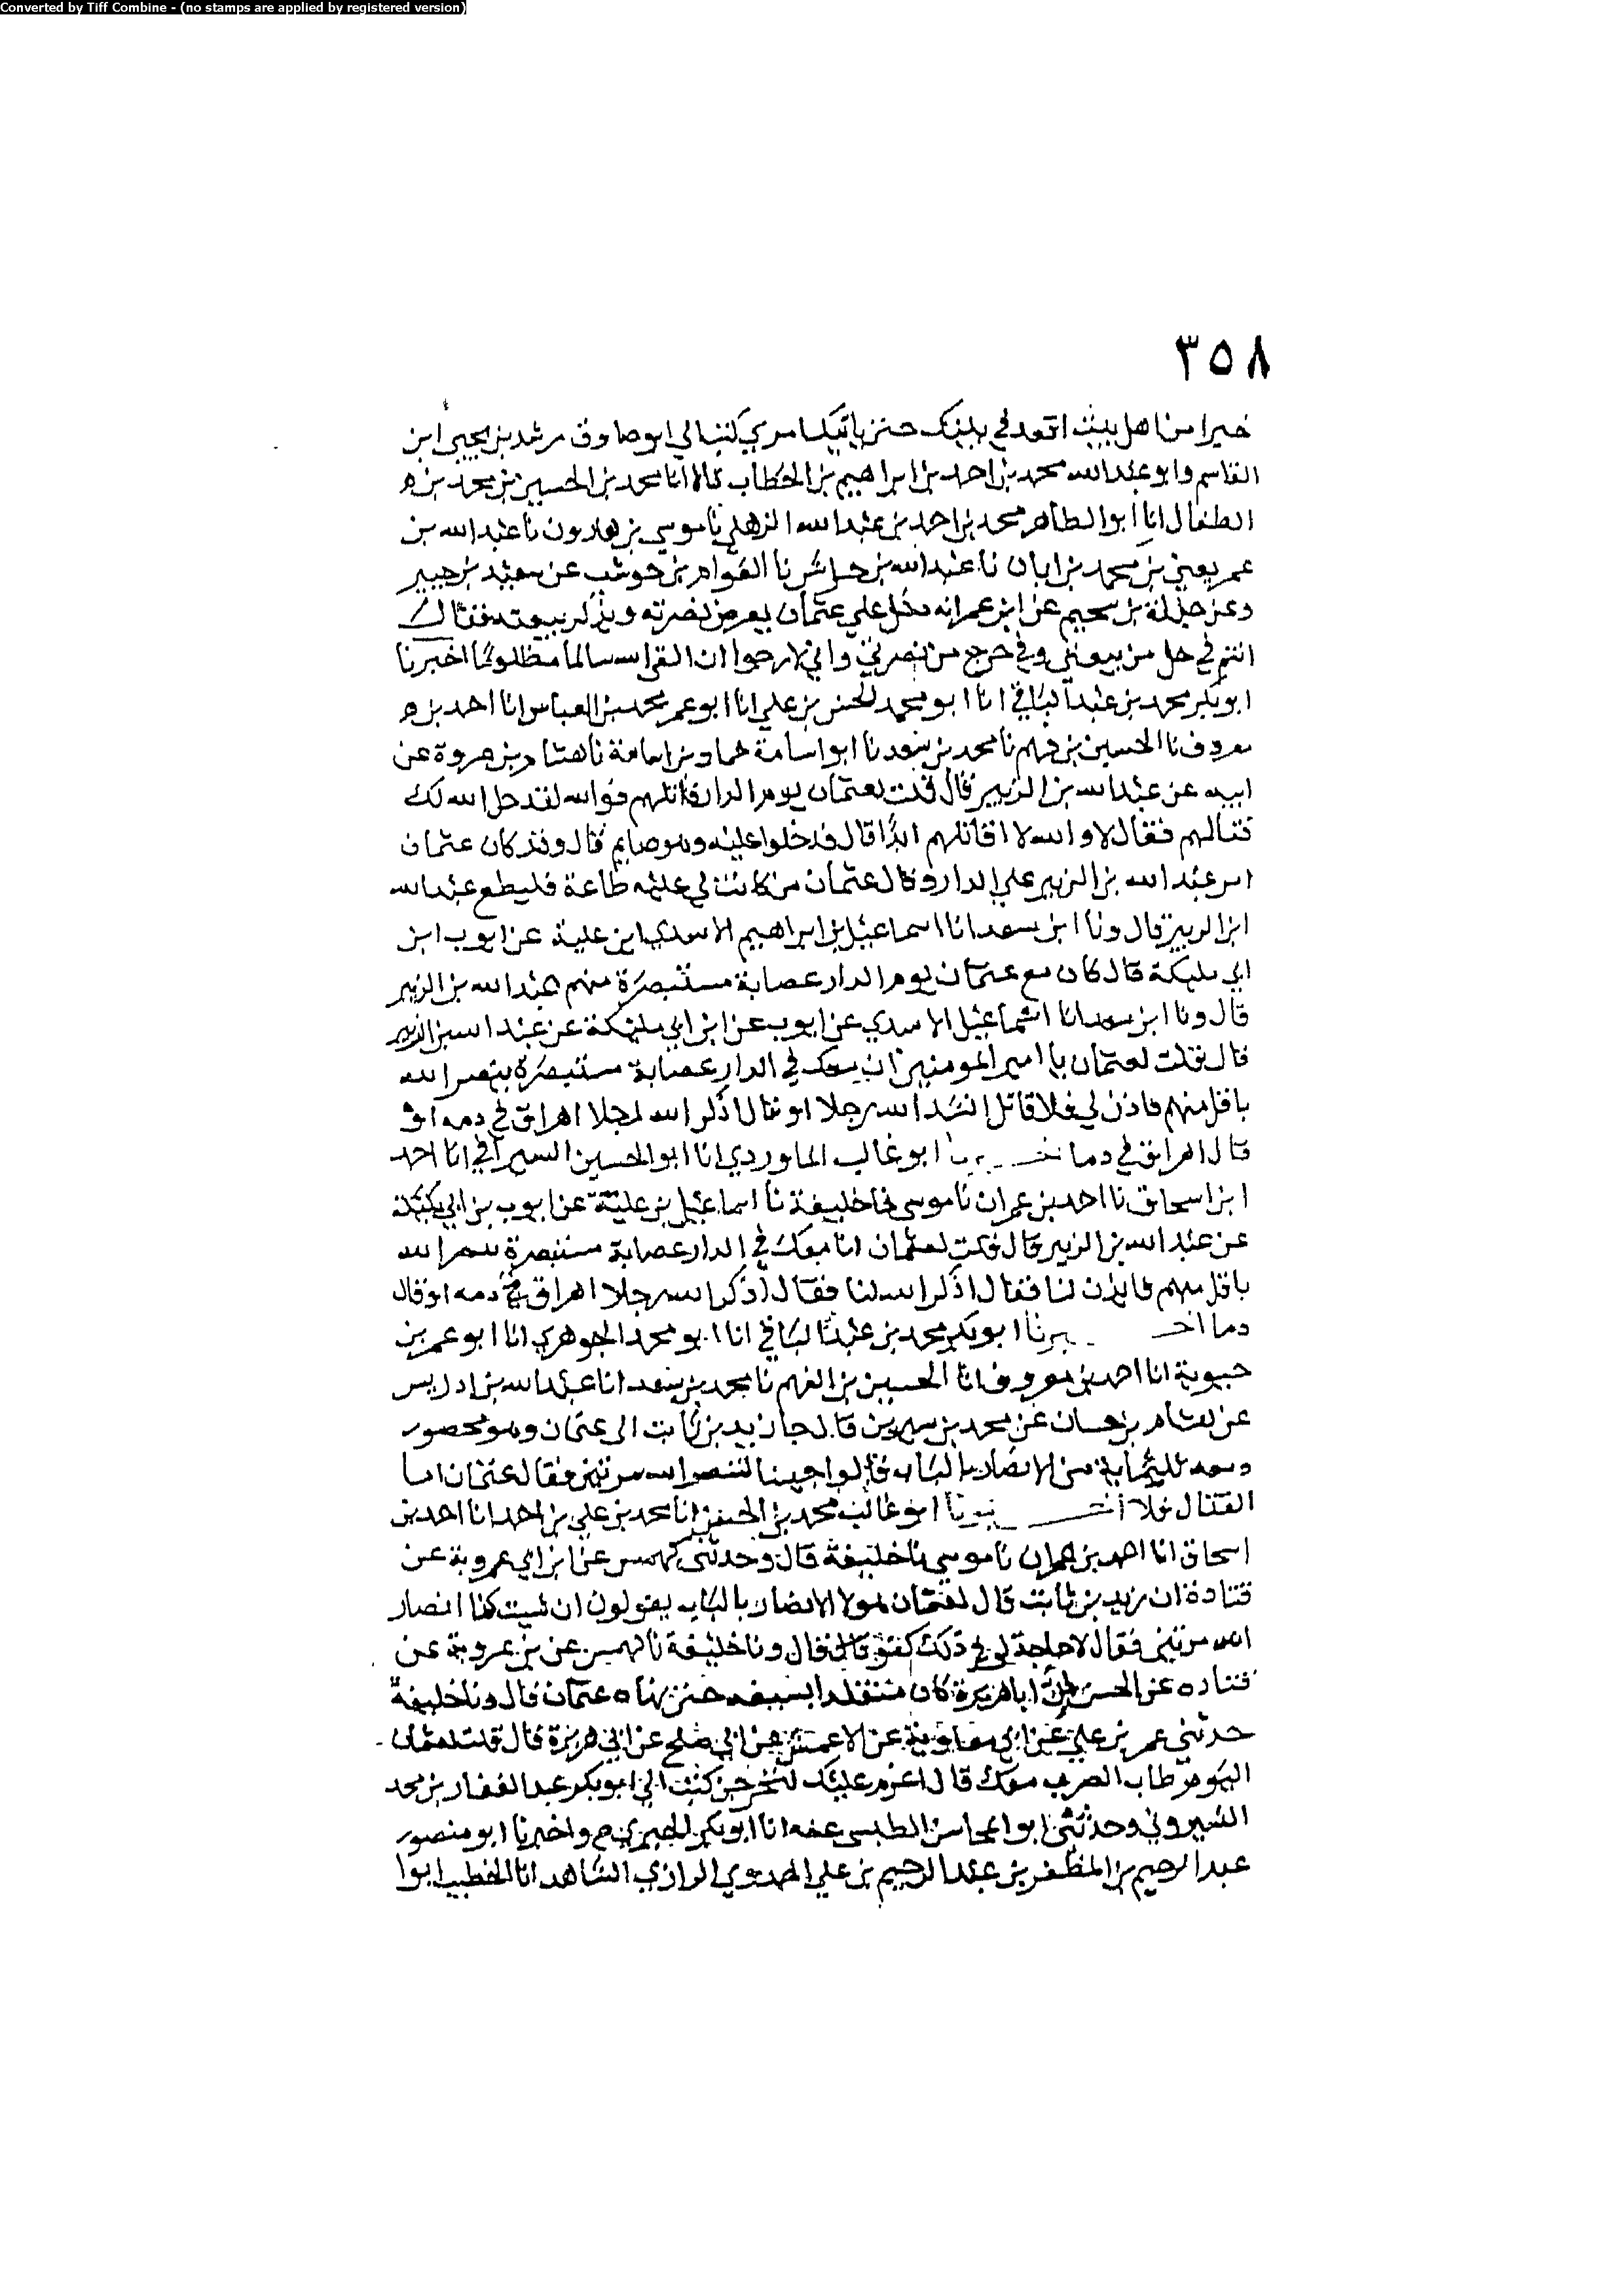 Converted by Tiff Combine - (no stamps are applied by registered version)
٣٥٨
خيرا من اهل بيت اقعد في بيتك حتى ياتيك امري كتب الي ابو صادق مرشد بن يحيى ابن
القاسم وابو عبد الله محمد بن احمد بن ابراهيم بن الحطاب قالا انا محمد بن الحسين بن محمد بن
الطفال انا ابو الطاهر محمد بن احمد بن عبد الله الذهلي نا موسى بن هارون نا عبد الله بن
عمر يعني بن محمد بن ابان نا عبد الله بن خراش نا العوام بن حوشب عن سعيد بن جبير
وعن جبلة بن سحيم عن ابن عمر انه دخل على عثمان يعرض نصرته ويذكر بيعته فقال
انتم في حل من بيعتي وفي حرج من نصرتي واني لارجوا ان القى الله سالما مظلوما اخبرنا
ابو بكر محمد بن عبد الباقي انا ابو محمد الحسن بن علي انا ابو عمر محمد بن العباس انا احمد بن
معروف نا الحسين بن فهم نا محمد بن سعد نا ابو اسامة حماد بن اسامة نا هشام بن عروة عن
ابيه عن عبد الله بن الزبير قال قلت لعثمان يوم الدار قاتلهم فوالله لقد حل الله لك
قتالهم فقال لا والله لا اقاتلهم ابدا قال فدخلوا عليه وهو صايم قال وقد كان عثمان
امر عبد الله بن الزبير على الدار وقال عثمان من كانت لي عليه طاعة فليطع عبد الله
ابن الزبير قال ونا ابن سعد انا اسماعيل بن ابراهيم الاسدي ابن علية عن ايوب ابن
ابي مليكة قال كان مع عثمان يوم الدار عصابة مستبصرة منهم عبد الله بن الزبير
قال ونا ابن سعد انا اسماعيل الاسدي عن ايوب عن ابن ابي مليكة عن عبد الله بن الزبير
قال قلت لعثمان يا امير المومنين ان معك في الدار عصابة مستبصرة ينصر الله
باقل منهم فاذن لي فلاقاتل انشد الله رجلا او قال اذكر الله رجلا اهراق في دمه او
قال اهراق في دما ابو غالب الماوردي انا ابو الحسين السيرافي انا احمد
ابن اسحاق نا احمد بن عمران نا موسى نا خليفة نا اسماعيل بن علية عن ايوب بن ابي مليكة
عن عبد الله بن الزبير قال قلت لعثمان انا معك في الدار عصابة مستبصرة ينصر الله
باقل منهم فايذن لنا فقال اذكر الله لنا فقال اذكر الله رجلا اهراق في دمه او قال
دما اخبرنا ابو بكر محمد بن عبد الباقي انا ابو محمد الجوهري انا ابو عمر بن
حيوية انا احمد بن معروف انا الحسين بن الفهم نا محمد بن سعد انا عبد الله بن ادريس
عن هشام بن حسان عن محمد بن سيرين قال جا زيد بن ثابت الى عثمان وهو محصور
ومعه ثلثماية من الانصار بالباب قالوا جينا لننصر الله مرتين فقال عثمان اما
القتال فلا اخبرنا ابو غالب محمد بن الحسن انا محمد بن علي بن احمد انا احمد بن
اسحاق انا احمد بن عمران نا موسى نا خليفة قال وحدثني كهمس عن ابن ابي عروبة عن
قتادة ان زيد بن ثابت قال لعثمان هولا الانصار بالباب يقولون ان شيت كنا انصار
الله مرتين فقال لا حاجة لي في ذلك كفوا قال ونا خليفة نا كهمس عن بن عروبة عن
قتاده عن الحسن ان ابا هريرة كان متقلدا بسيفه حتى نهاه عثمان قال ونا خليفة
حدثني عمر بن علي عن ابي معاوية عن الاعمش عن ابي صلح عن ابي هريرة قال قلت لعثمان
اليوم طاب الضرب معك قال اعزم عليك لتخرجن كتب الي ابو بكر عبد الغفار بن محمد
الشيروي وحدثني ابو المحاسن الطبسي عنه انا ابو بكر الحيري ح واخبرنا ابو منصور
عبد الرحيم بن المظفر بن عبد الرحيم بن علي الحمدوي الرازي الشاهد انا الخطيب ابوا